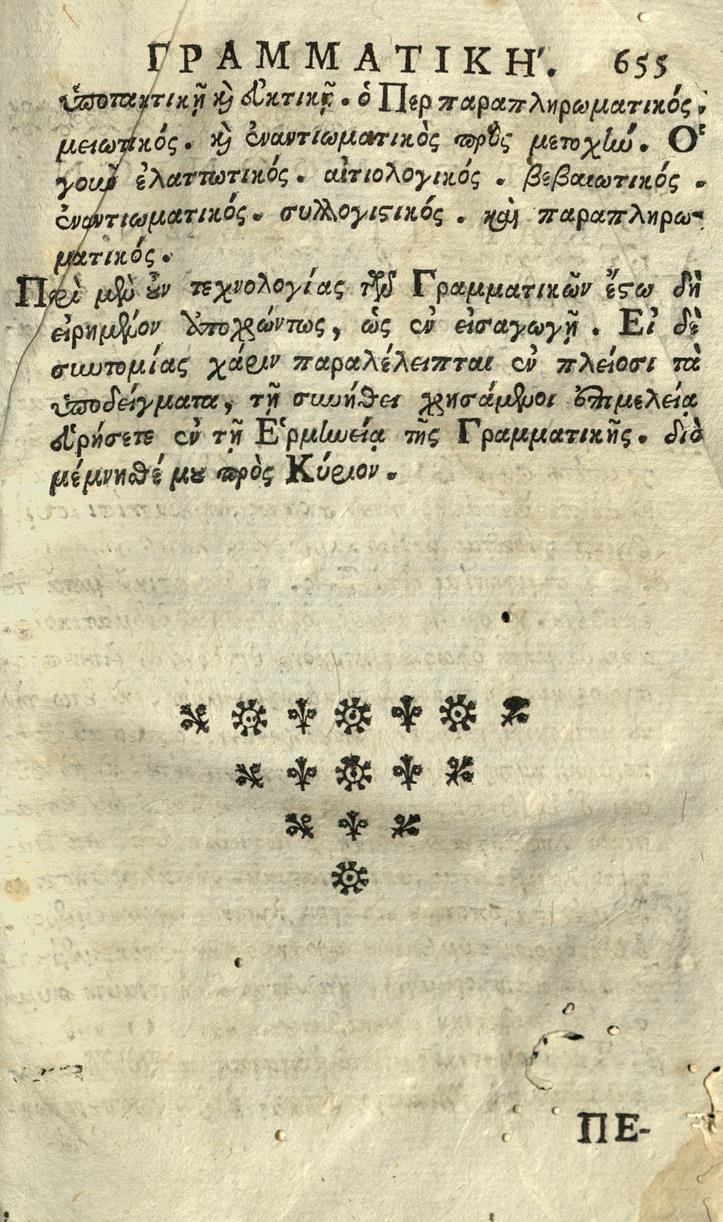 ΓΡΑΜΜΑΤΙΚΗ΄. 655
ὑποτακτικῇ καὶ εὐκτικῇ. ὁ Περ παραπληρωματικός,
μειωτικός. καὶ ἐναντιωματικὸς πρὸς μετοχὴν. Ὁ
γοῦν ἐλαττωτικός. αἰτιολογικός. βεβαιωτικός.
ἐναντιωματικός. συλλογιστικός. καὶ παραπληρω-
ματικός.
Περὶ μὲν οὖν τεχνολογίας τῶν Γραμματικῶν ἔστω δὴ
εἰρημένον ἀποχρώντως, ὡς ἐν εἰσαγωγῇ. Εἰ δὲ
συντομίας χάριν παραλέλειπται ἐν πλείοσι τὰ
ὑποδείγματα, τῇ συνήθει χρησάμενοι ἐπιμελείᾳ
εὑρήσετε ἐν τῇ Ἑρμηνείᾳ τῆς Γραμματικῆς. διὸ
μέμνησθέ μου πρὸς Κύριον.
ΠΕ-